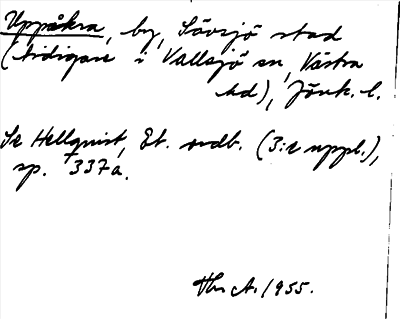 Uppåkra, by, Sävsjö stad
(tidigare i Vallsjö sn, Västra
hd), Jönk. l.
Se Hellquist, Et. ordb. (3:e uppl.),
sp. 337a.
A. 1955.